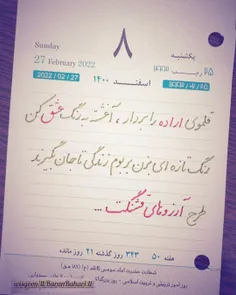 Sunday
27 February 2022
2022 / 02 / 27
۸
یکشنبه
۲۵ رجب ۱۴۴۳
اسفند ۱۴۰۰
قلموی اراده را بردار ، آغشته به رنگ عشق کن
رنگ تازه ای بزن بر بوم زندگی تا جان بگیرند
طرح آرزوهای قشنگت ...
هفته ۵۰ ۳۴۳ روز گذشته ۲۱ روز مانده
شهادت حضرت امام موسی کاظم (ع) (۱۸۳ ه ق)